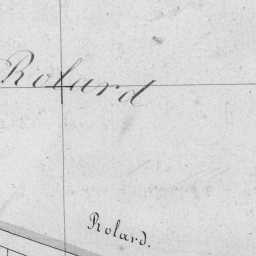 Rolard
Rolard.